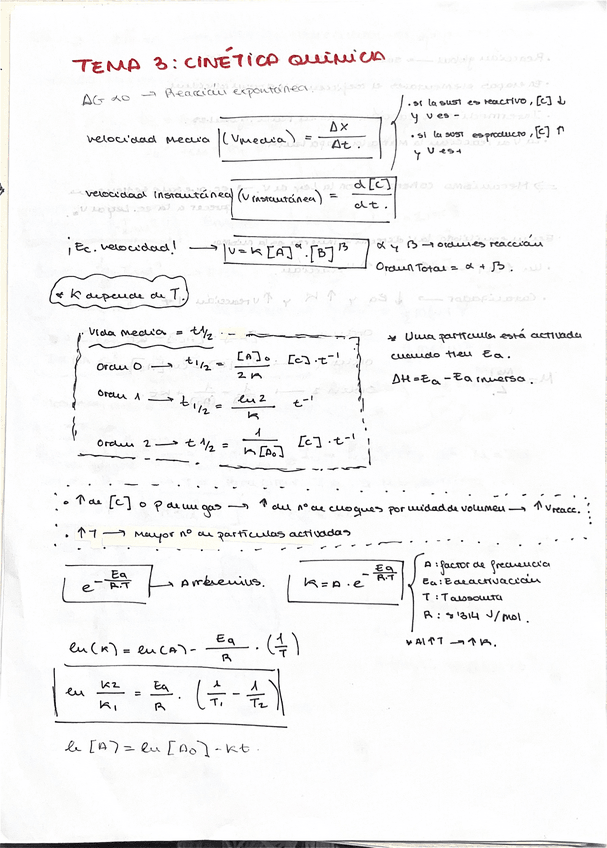 TEMA 3: CINÉTICA QUÍMICA
ΔG <0 → Reacción espontánea.
velocidad media (Vmedia) = Δx / Δt.
· si la sust es reactivo, [C] ↓ y v es -
· si la sust es producto, [C] ↑ y v es +
velocidad instantánea (V instantánea) = d[C] / dt.
¡Ec. velocidad! → V = K [A]^α · [B]^β α y β → ordenes reacción
Orden Total = α + β.
* K depende de T.
Vida media = t1/2
Orden 0 → t1/2 = [A]0 / 2K [C]·t⁻¹
Orden 1 → t1/2 = ln2 / K t⁻¹
Orden 2 → t1/2 = 1 / K[A0] [C]·t⁻¹
* Una partícula está activada
cuando tien Ea.
ΔH = Ea - Ea inversa.
· ↑ de [C] o p de m gas → ↑ del nº de choques por unidad de volumen → ↑ Vreacc.
· ↑T → Mayor nº de partículas activadas
e^(-Ea/R.T) → Arrhenius. K = A · e^(-Ea/R.T)
A: factor de frecuencia
Ea: E de activación
T: T absoluta
R: 8'314 J/mol.
* Al ↑T → ↑K.
ln(K) = ln(A) - Ea/R · (1/T)
ln K2/K1 = Ea/R · (1/T1 - 1/T2)
ln [A] = ln [A0] - Kt.